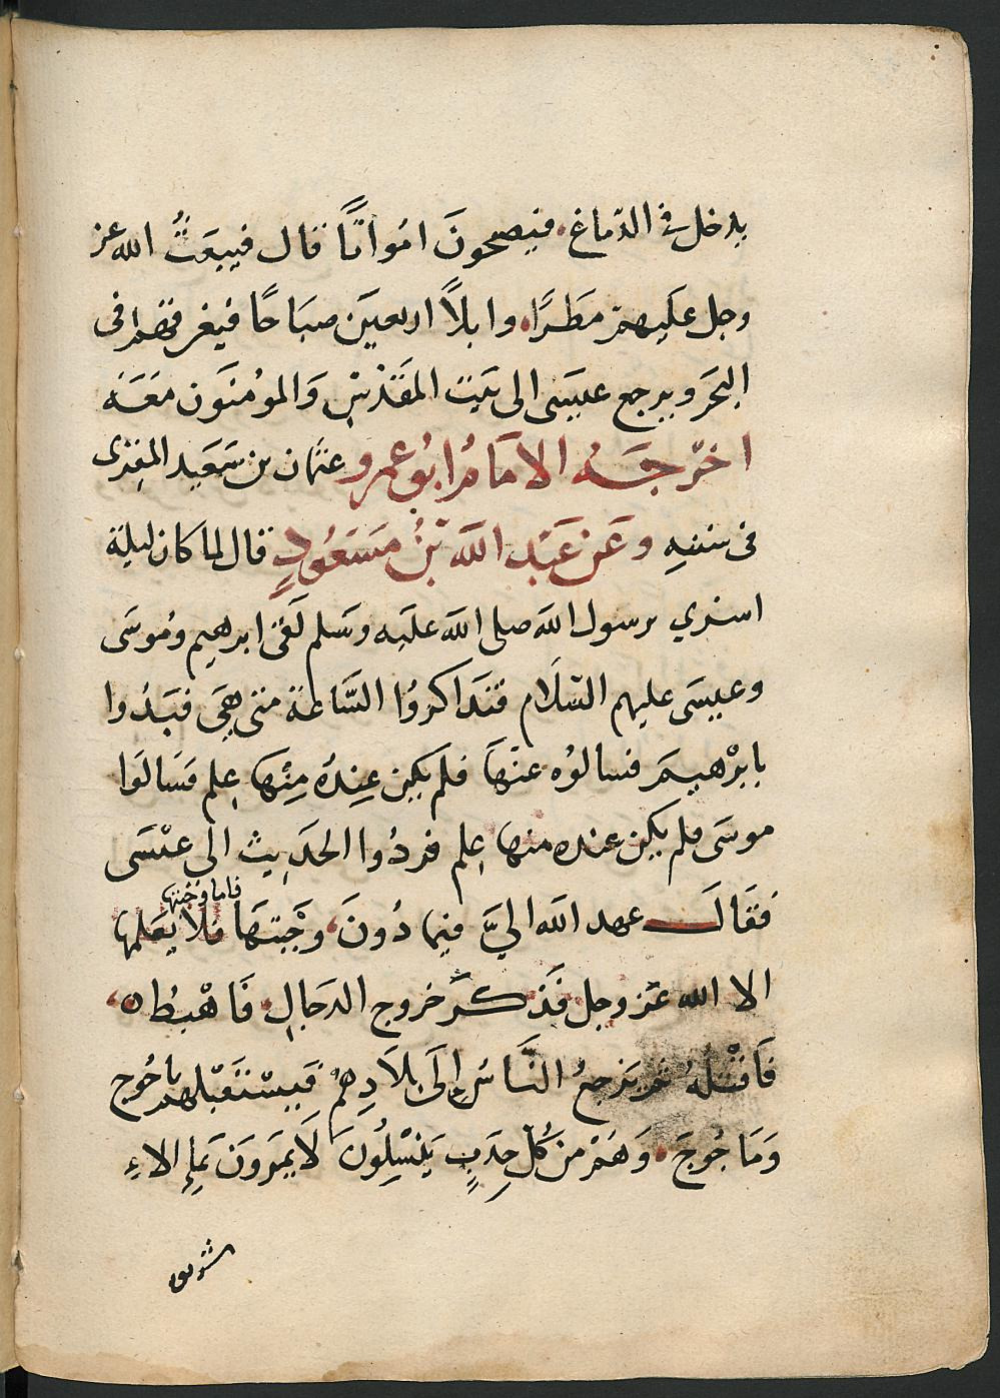 يدخل في الدّماغ. فيصبحونَ امواتًا قال فيبعَثُ الله عز
وجل عليهم مَطَرًا. وابلاً اربعين صبَاحًا فيغرقهم فى
البحَر ويرجع عيسَى الى بيَت المقَدْسِ وَالمومنوَن مَعَهَ
اخرّجَهُ الامَامُ ابُو عمرو عثمان بن سَعَيد المقِرى
فى سننهِ وعَن عَبَدِ اللهَ بْنُ مسَعَوُدٍ قال لما كان ليلة
اسرى برسول اللهَ صلى اللهَ علَيه وسَلم لقَى ابرهيم ومُوسَى
وعيسَى عليهم السّلَام فتَذاكروُا السَّاعَة متى هِيَ فبَدُوا
بابرْهيمَ فسالوُه عنْهَا فلم يكِن عِندهُ مِنْها عِلم فسَالوَا
موسَى فلم يكِن عنده منها عِلم فردُوا الحدَيث الى عيْسَى
فقَالَ عهد الله اليَّ فيما دُونَ، وجْبتهَا فلا يَعلمها
فاما وجبتها
الا الله عَز وجل فَذكرَ خروج الدجالِ. فَاهْبطُ ه،
فَاقْتلهُ ثم يَرجعُ النَّاسُ إِلَى بلَادِهمُ فيَسْتَقَبْلهم ياجُوج
وَمَاجُوجَ. وَهَمْ من كُلّ حِدَبٍ يَنْسِلُون لَا يَمرونَ بمِاءِ الاءِ
شربو